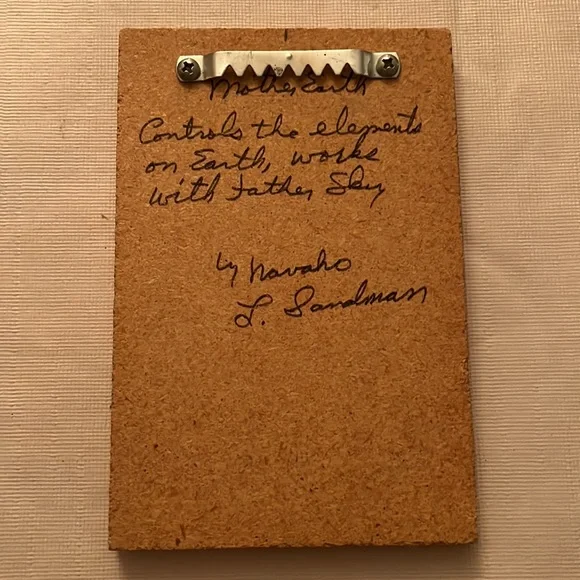 Mother Earth
Controls the elements
on Earth, works
with Father Sky
by Navaho
L. Sandman